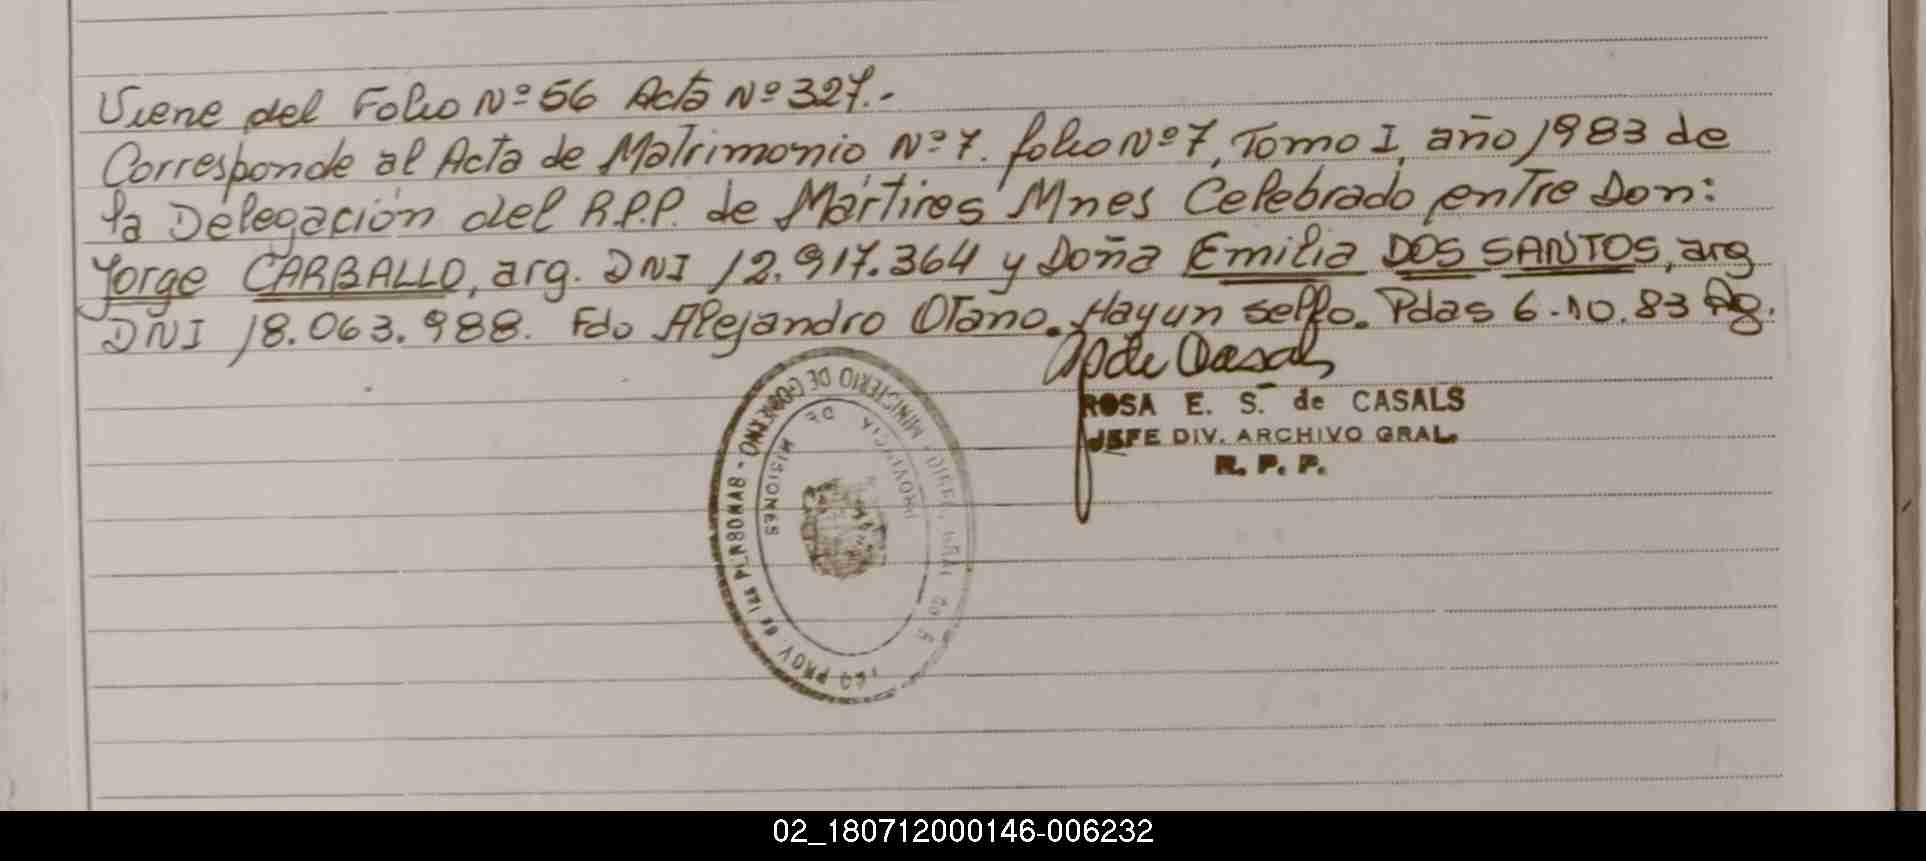 Viene del Folio Nº 56 Acta Nº 327.-
Corresponde al Acta de Matrimonio Nº 7. folio Nº 7, Tomo I, año 1983 de
la Delegación del R.P.P. de Mártires Mnes Celebrado entre Don:
Jorge CARBALLO, arg. DNI 12.917.364 y Doña Emilia DOS SANTOS, arg
DNI 18.063.988. Fdo Alejandro Otano. Hay un sello. Pdas 6.10.83
ROSA E. S. de CASALS
JEFE DIV. ARCHIVO GRAL.
R. P. P.
MINISTERIO DE GOBIERNO - DE LAS PERSONAS
PROVINCIA DE MISIONES
02_180712000146-006232